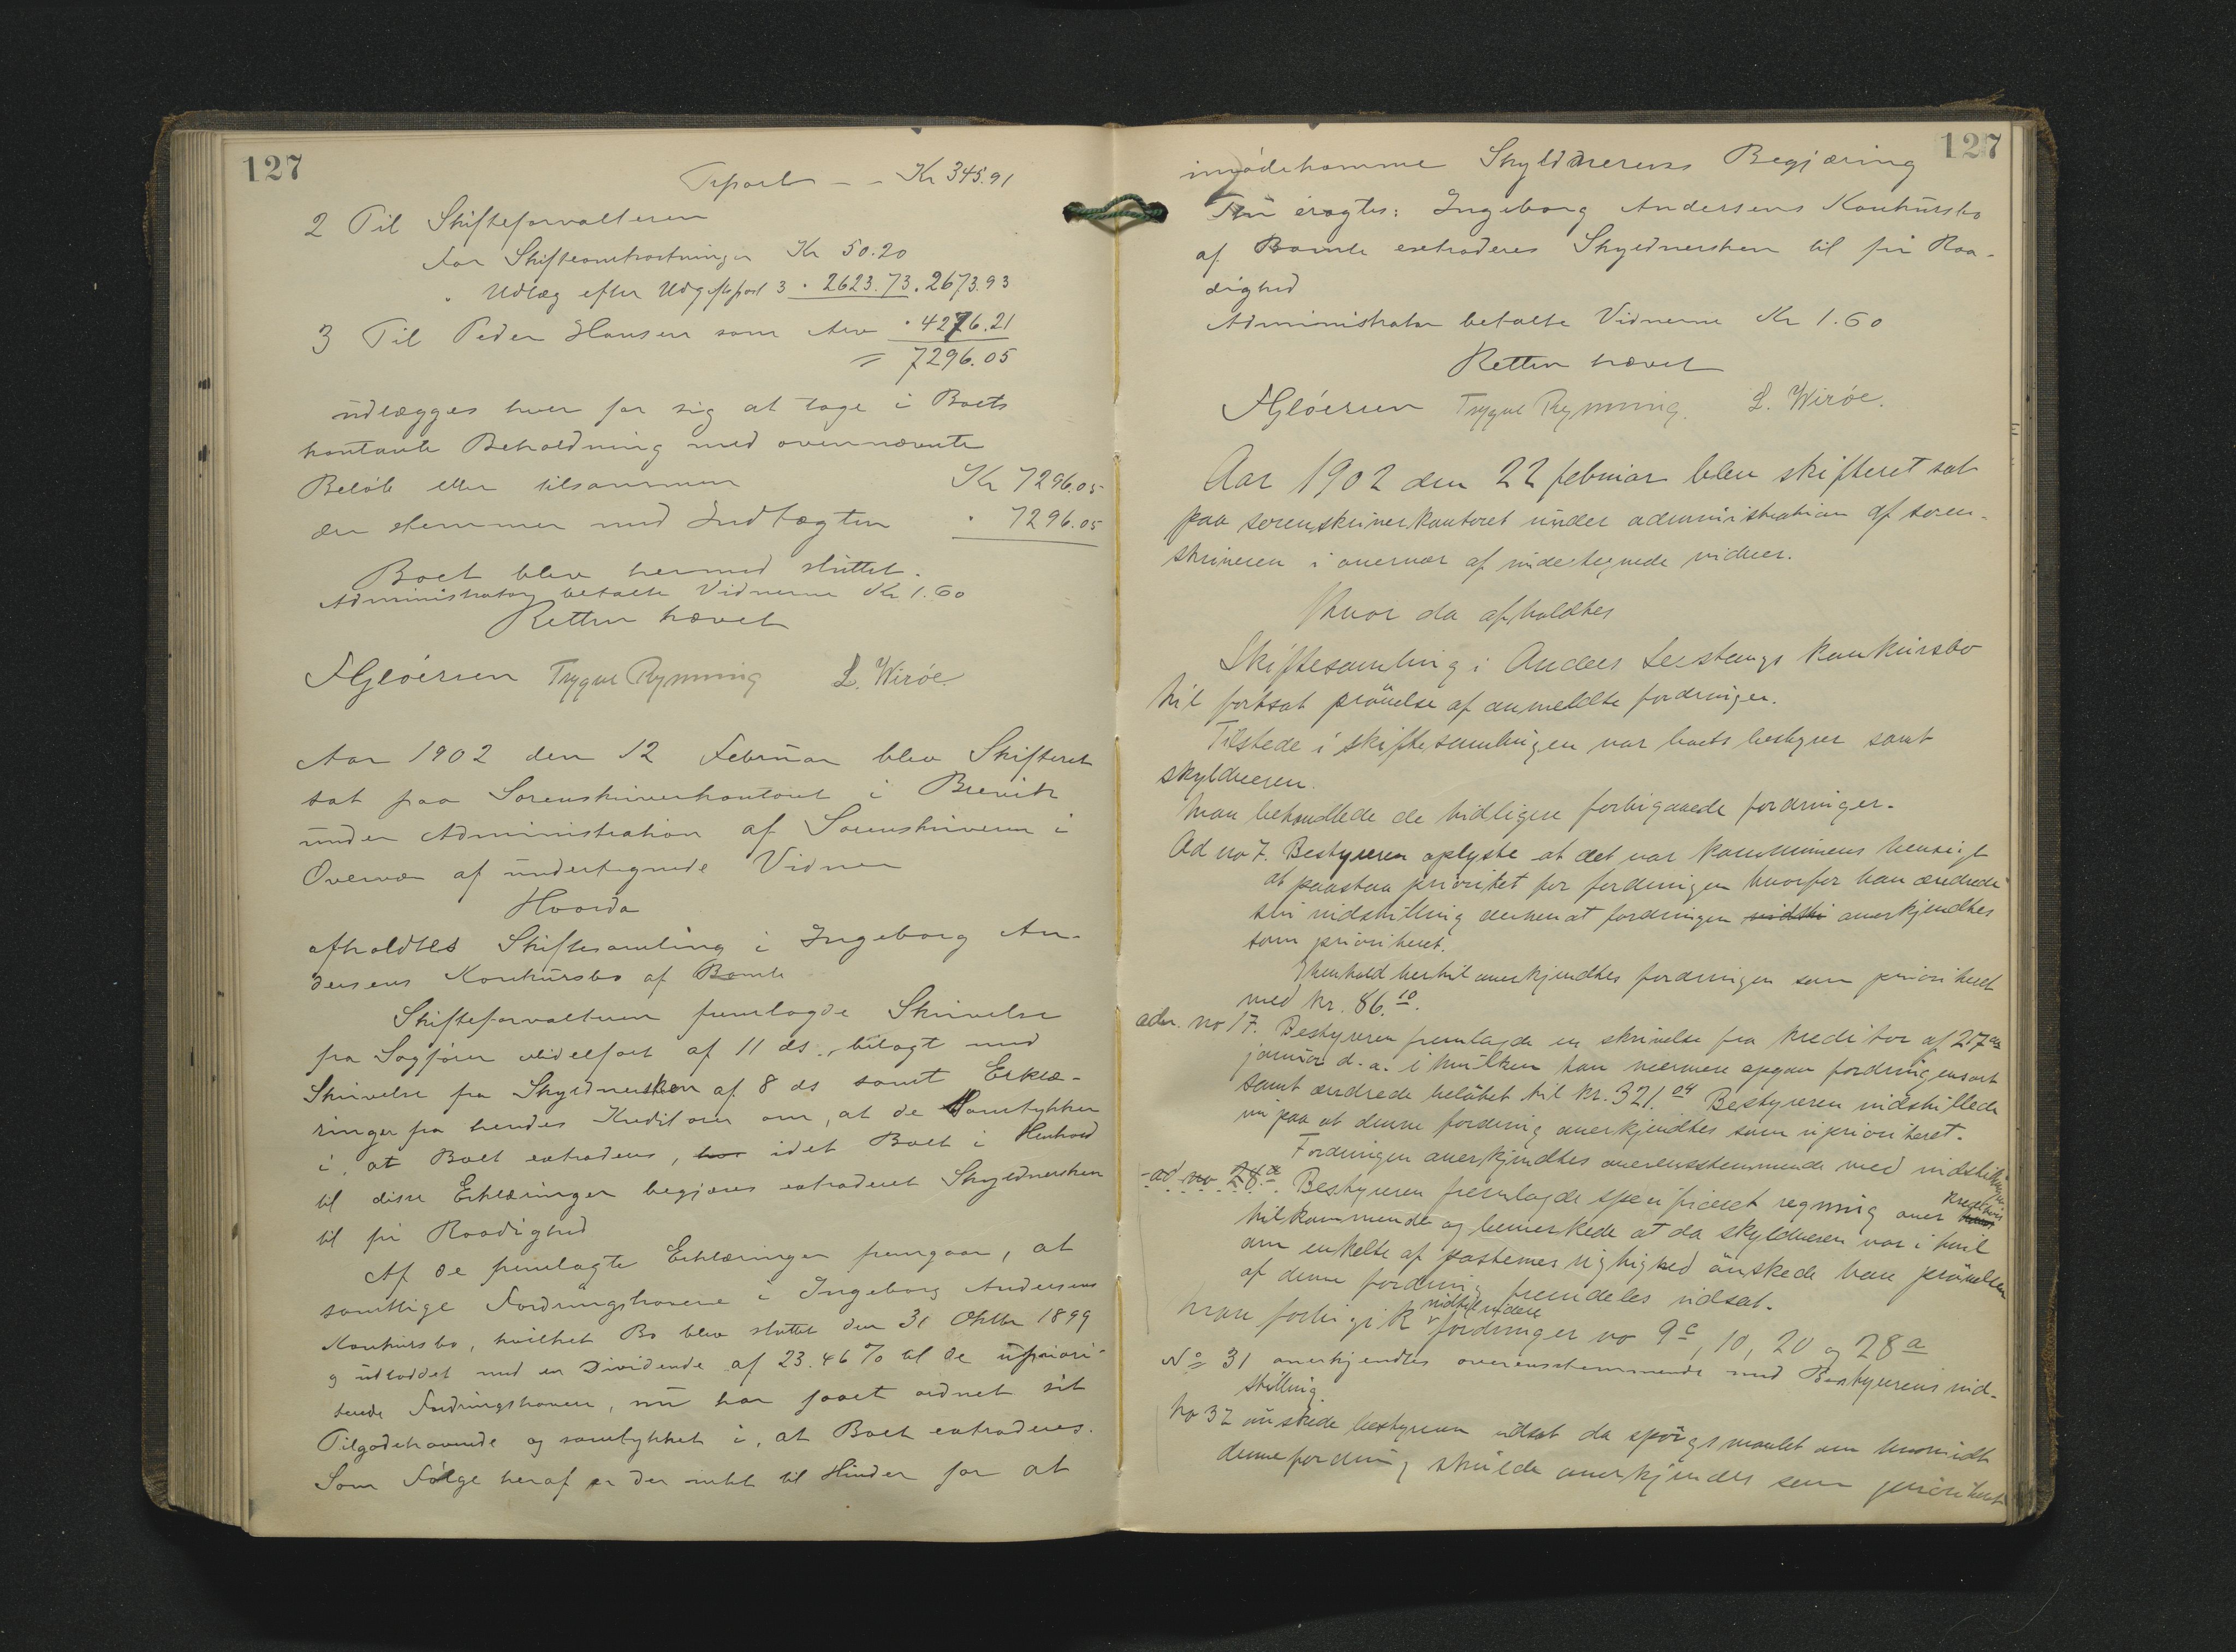 127
Trsport - - Kr 345.91
2 Til Skifteforvalteren
for Skifteomkostninger Kr 50.20
" Udlæg efter Udgiftspost 3 " 2623.73. 2673.93
3 Til Peder Hansen som Arv " 4276.21
= 7296.05
udlægges hver for sig at tage i Boets
kontante Beholdning med ovennævnte
Beløb eller tilsammen Kr 7296.05
der stemmer med Indtægten " 7296.05
Boet blev hermed sluttet.
Administrator betalte Vidnerne Kr 1.60
Retten hævet
FGløersen Trygve Rynning L. Wirøe.
Aar 1902 den 12 Februar blev Skifteret
sat paa Sorenskriverkontoret i Brevik
under Administration af Sorenskriveren i
Overvær af undertegnede Vidner
Hvorda
afholdtes Skiftesamling i Ingeborg An-
dersens Konkursbo af Bamle
Skifteforvalteren fremlagde Skrivelse
fra Sagfører af 11 ds., bilagt med
Skrivelse fra Skyldnersken af 8 ds samt Erklæ-
ringer fra hendes Kreditorer om, at de Samtykker
i, at Boet extraderes, idet Boet i Henhold
til disse Erklæringer begjæres extraderet Skyldnersken
til fri Raadighed
Af de fremlagte Erklæringer fremgaar, at
samtlige Fordringshavere i Ingeborg Andersens
Konkursbo, hvilket Bo blev sluttet den 31 Oktbr 1899
og udloddet med en Dividende af 23.46 % til de upriori-
terede Fordringshavere, nu har faaet ordnet sit
Tilgodehavende og samtykket i, at Boet extraderes.
Som Følge heraf er der intet til Hinder for at
127
imødekomme Skyldnerens Begjæring
Thi eragtes: Ingeborg Andersens Konkursbo
af Bamle extraderes Skyldnersken til fri Raa-
dighed
Administrator betalte Vidnerne Kr 1.60
Retten hævet
FGløersen Trygve Rynning. L. Wirøe.
Aar 1902 den 22 februar blev skifteret sat
paa sorenskriverkontoret under administration af soren-
skriveren i overvær af undertegnede vidner.
Hvor da afholdtes
Skiftesamling i Anders Leestangs konkursbo
til fortsat prøvelse af anmeldte fordringer.
Tilstede i skiftesamlingen var boets bestyrer samt
skyldneren.
Man behandlede de tidligere forbigaaede fordringer.
Ad no 7. Bestyreren oplyste at det var kommunens hensigt
at paastaa prioritet for fordringen hvorfor han ændrede
sin indstilling derhen at fordringen indsti anerkjendtes
som prioriteret.
I henhold hertil anerkjendtes fordringen som prioriteret
med kr. 86.10.
ad. no 17. Bestyreren fremlagde en skrivelse fra kreditor af 27de
januar d.a. i hvilken han nærmere opgav fordringens art
samt ændrede beløbet til kr. 321.04 Bestyreren indstillede
nu paa at denne fordring anerkjendtes som uprioriteret.
Fordringen anerkjendtes overensstemmende med indstillingen
- ad no 28a. Bestyreren fremlagde specificeret regning over kreditors
tilkommende og bemerkede at da skyldneren var i tvil
om enkelte af posternes rigtighed ønskede han prøvelsen
af denne fordring fremdeles udsat.
Man forbigik indtil videre fordringer no 9c, 10, 20 og 28a
No 31 anerkjendtes overensstemmende med Bestyrerens ind-
stilling
No 32 ønskede bestyreren udsat da spørgsmaalet om hvorvidt
denne fordring skulde anerkjendes som prioriteret